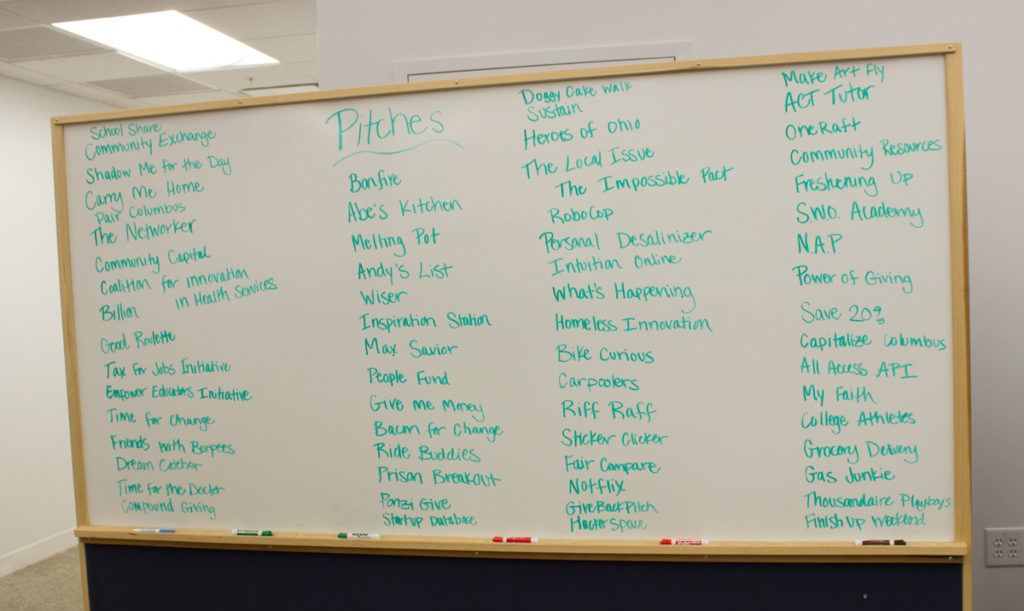 School Share
Community Exchange
Shadow Me for the Day
Carry Me Home
Pair Columbus
The Networker
Community Capital
Coalition for innovation
in Health Services
Billion
Good Roulette
Tax for Jobs Initiative
Empower Educators Initiative
Time for Change
Friends with Burpees
Dream Catcher
Time for the Doctor
Compound Giving
Pitches
Bonfire
Abe's Kitchen
Melting Pot
Andy's List
Wiser
Inspiration Station
Max Savior
People Fund
Give me Money
Bacon for Change
Ride Buddies
Prison Breakout
Ponzi Give
Startup Database
Doggy Cake Walk
Sustain
Heroes of Ohio
The Local Issue
The Impossible Pact
RoboCop
Personal Desalinizer
Intuition Online
What's Happening
Homeless Innovation
Bike Curious
Carpoolers
Riff Raff
Sticker Clicker
Fair Compare
Notflix
Give Back Pitch
HackerSpace
Make Art Fly
ACT Tutor
OneRaft
Community Resources
Freshening Up
S.W.O. Academy
N.A.P.
Power of Giving
Save 20%
Capitalize Columbus
All Access API
My Faith
College Athletes
Grocery Delivery
Gas Junkie
Thousandaire Playboys
Finish Up Weekend